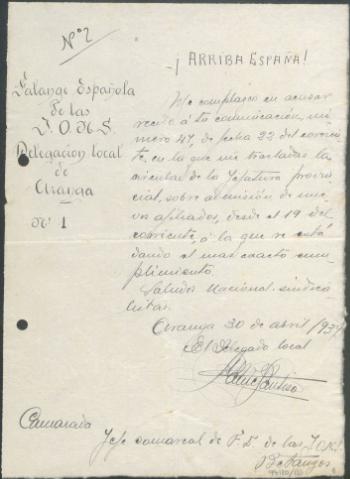 Nº 2
¡ARRIBA ESPAÑA!
Falange Española
de las
J.O.N.S.
Delegacion local
de
Aranga
Nº 1
Me complazco en acusar
recibo á tu comunicación, nú-
mero 47, de fecha 22 del corrien-
te, en la que me trasladas la
circular de la Jefatura provin-
cial, sobre admisión de nue-
vos afiliados, desde el 19 del
corriente, á la que se está
dando el mas exacto cum-
plimiento.
Saludos Nacional-sindica
listas.
Aranga 30 de abril 1937
El Delegado local
Camarada
Jefe comarcal de F. E. de las J.O.N.S.
Betanzos